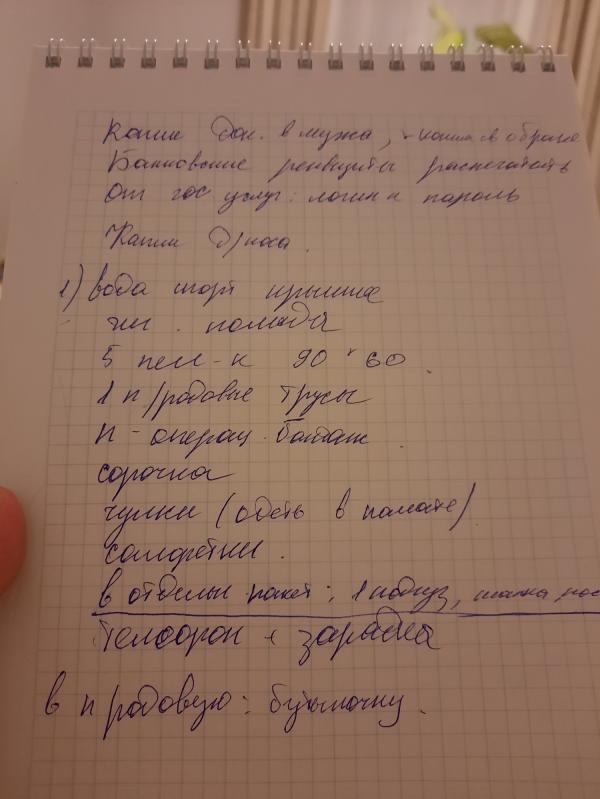 Копии док. в мужа, + копия в обрат
Банковские реквизиты распечатать
От гос услуг: логин и пароль
Капли д/носа.
1) вода спорт крышка
гиг. помада
5 пел-к 90*60.
1 п/родовые трусы
п-операц. бандаж.
сорочка
чулки (одеть в палате)
салфетки.
в отдельн пакет: 1 подгуз, шапка, нос
Телефон + зарядка
в п родовую: бутылочку.